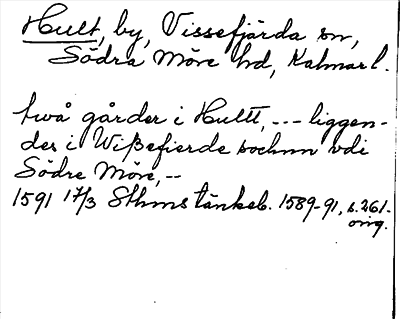 Hult, by, Vissefjärda sn,
Södra Möre hd, Kalmar l.
två gårder i Hultt, --- liggen-
des i Wißefierde sochnn vdi
Södre Möre, --
1591 17/3 Sthms tänkeb. 1589-91, s. 261.
orig.